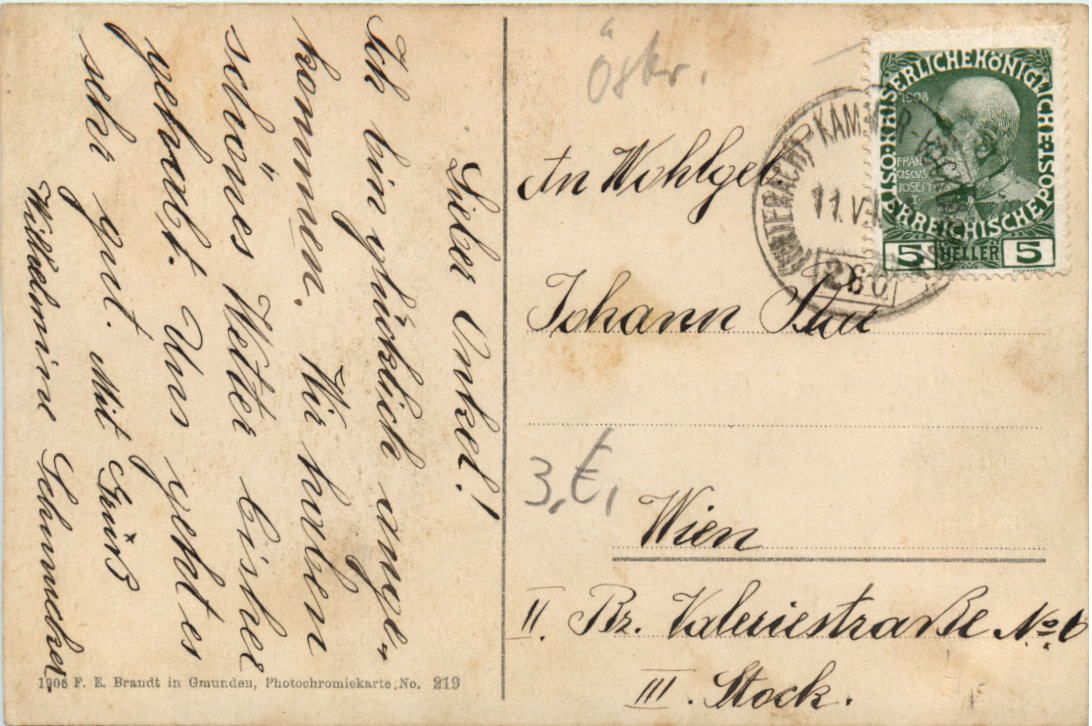 Lieber Onkel!
Ich bin glücklich ange-
kommen. Wir haben
schönes Wetter bisher
gehabt. Uns geht es
sehr gut. Mit Gruß
Wilhelmine Schmucker.
1906 F. E. Brandt in Gmunden, Photochromiekarte, No. 219
Östr.
KAISERLICHE KÖNIGLICHE
ÖSTERREICHISCHE POST
1908
FRAN
CISCVS
JOSEPH
I
5 HELLER 5
KAMMER-
11.V
280
An Wohlgeb
Johann
3,€,
Wien
II. Bz. Valeriestraße No 6
III. Stock.